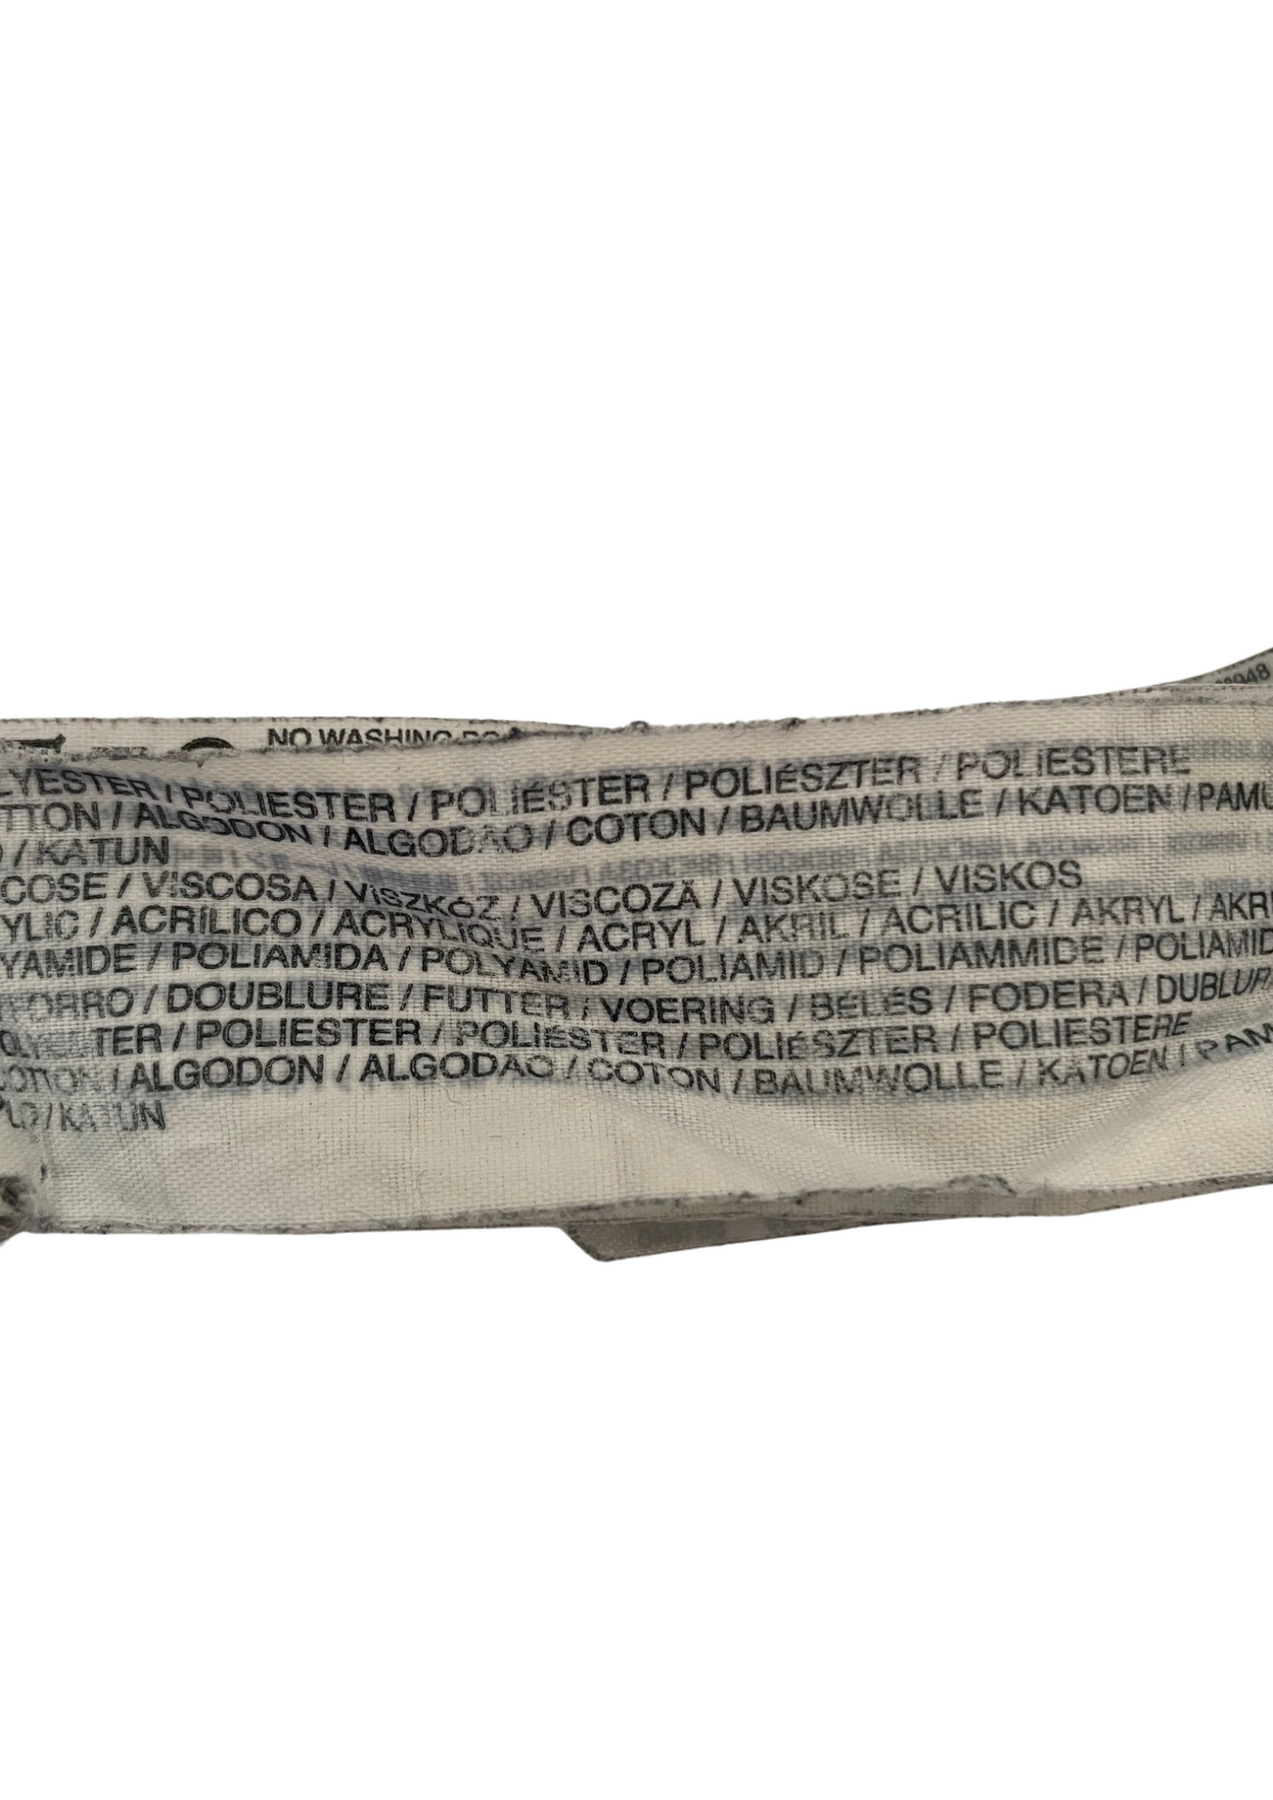 948
NO WASHING
LYESTER / POLIESTER / POLIÉSTER / POLIÉSZTER / POLIESTERE
TTON / ALGODON / ALGODAO / COTON / BAUMWOLLE / KATOEN / PAMU
/ KATUN
COSE / VISCOSA / VISZKÓZ / VISCOZĂ / VISKOSE / VISKOS
YLIC / ACRÍLICO / ACRYLIQUE / ACRYL / AKRIL / ACRILIC / AKRYL / AKRI
YAMIDE / POLIAMIDA / POLYAMID / POLIAMID / POLIAMMIDE / POLIAMID
FORRO / DOUBLURE / FUTTER / VOERING / BÉLÉS / FODERA / DUBLUR
TER / POLIESTER / POLIÉSTER / POLIÉSZTER / POLIESTERE
COTTON / ALGODON / ALGODAO / COTON / BAUMWOLLE / KATOEN / PAM
/ KATUN